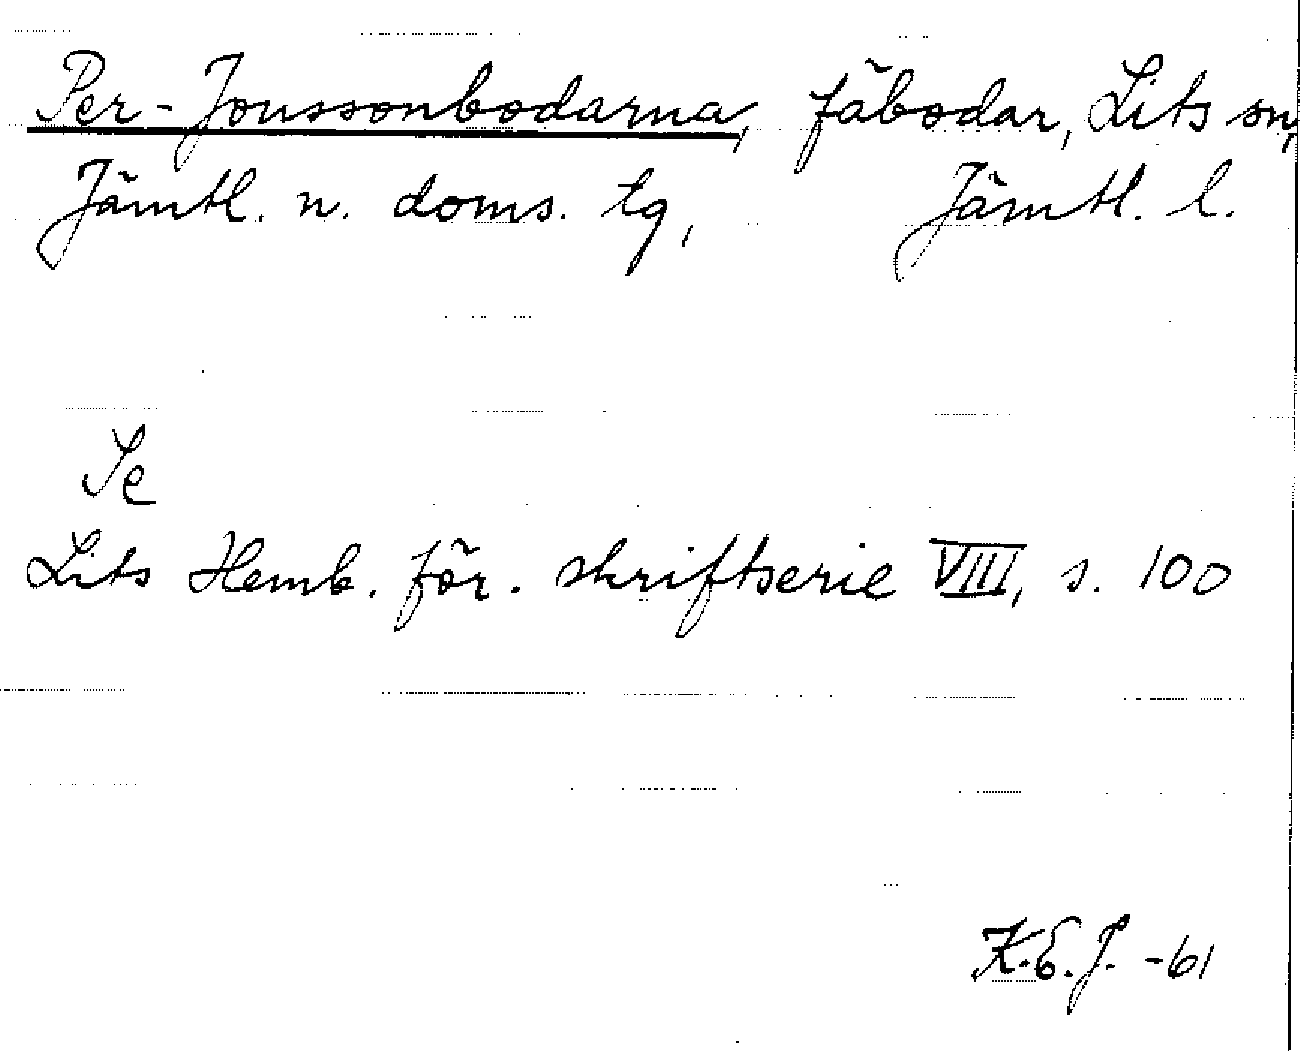 Per-Jonssonbodarna, fäbodar, Lits sn,
Jämtl. n. doms. tg, Jämtl. l.
Se
Lits Hemb. för. skriftserie VIII, s. 100
K.E.J. -61